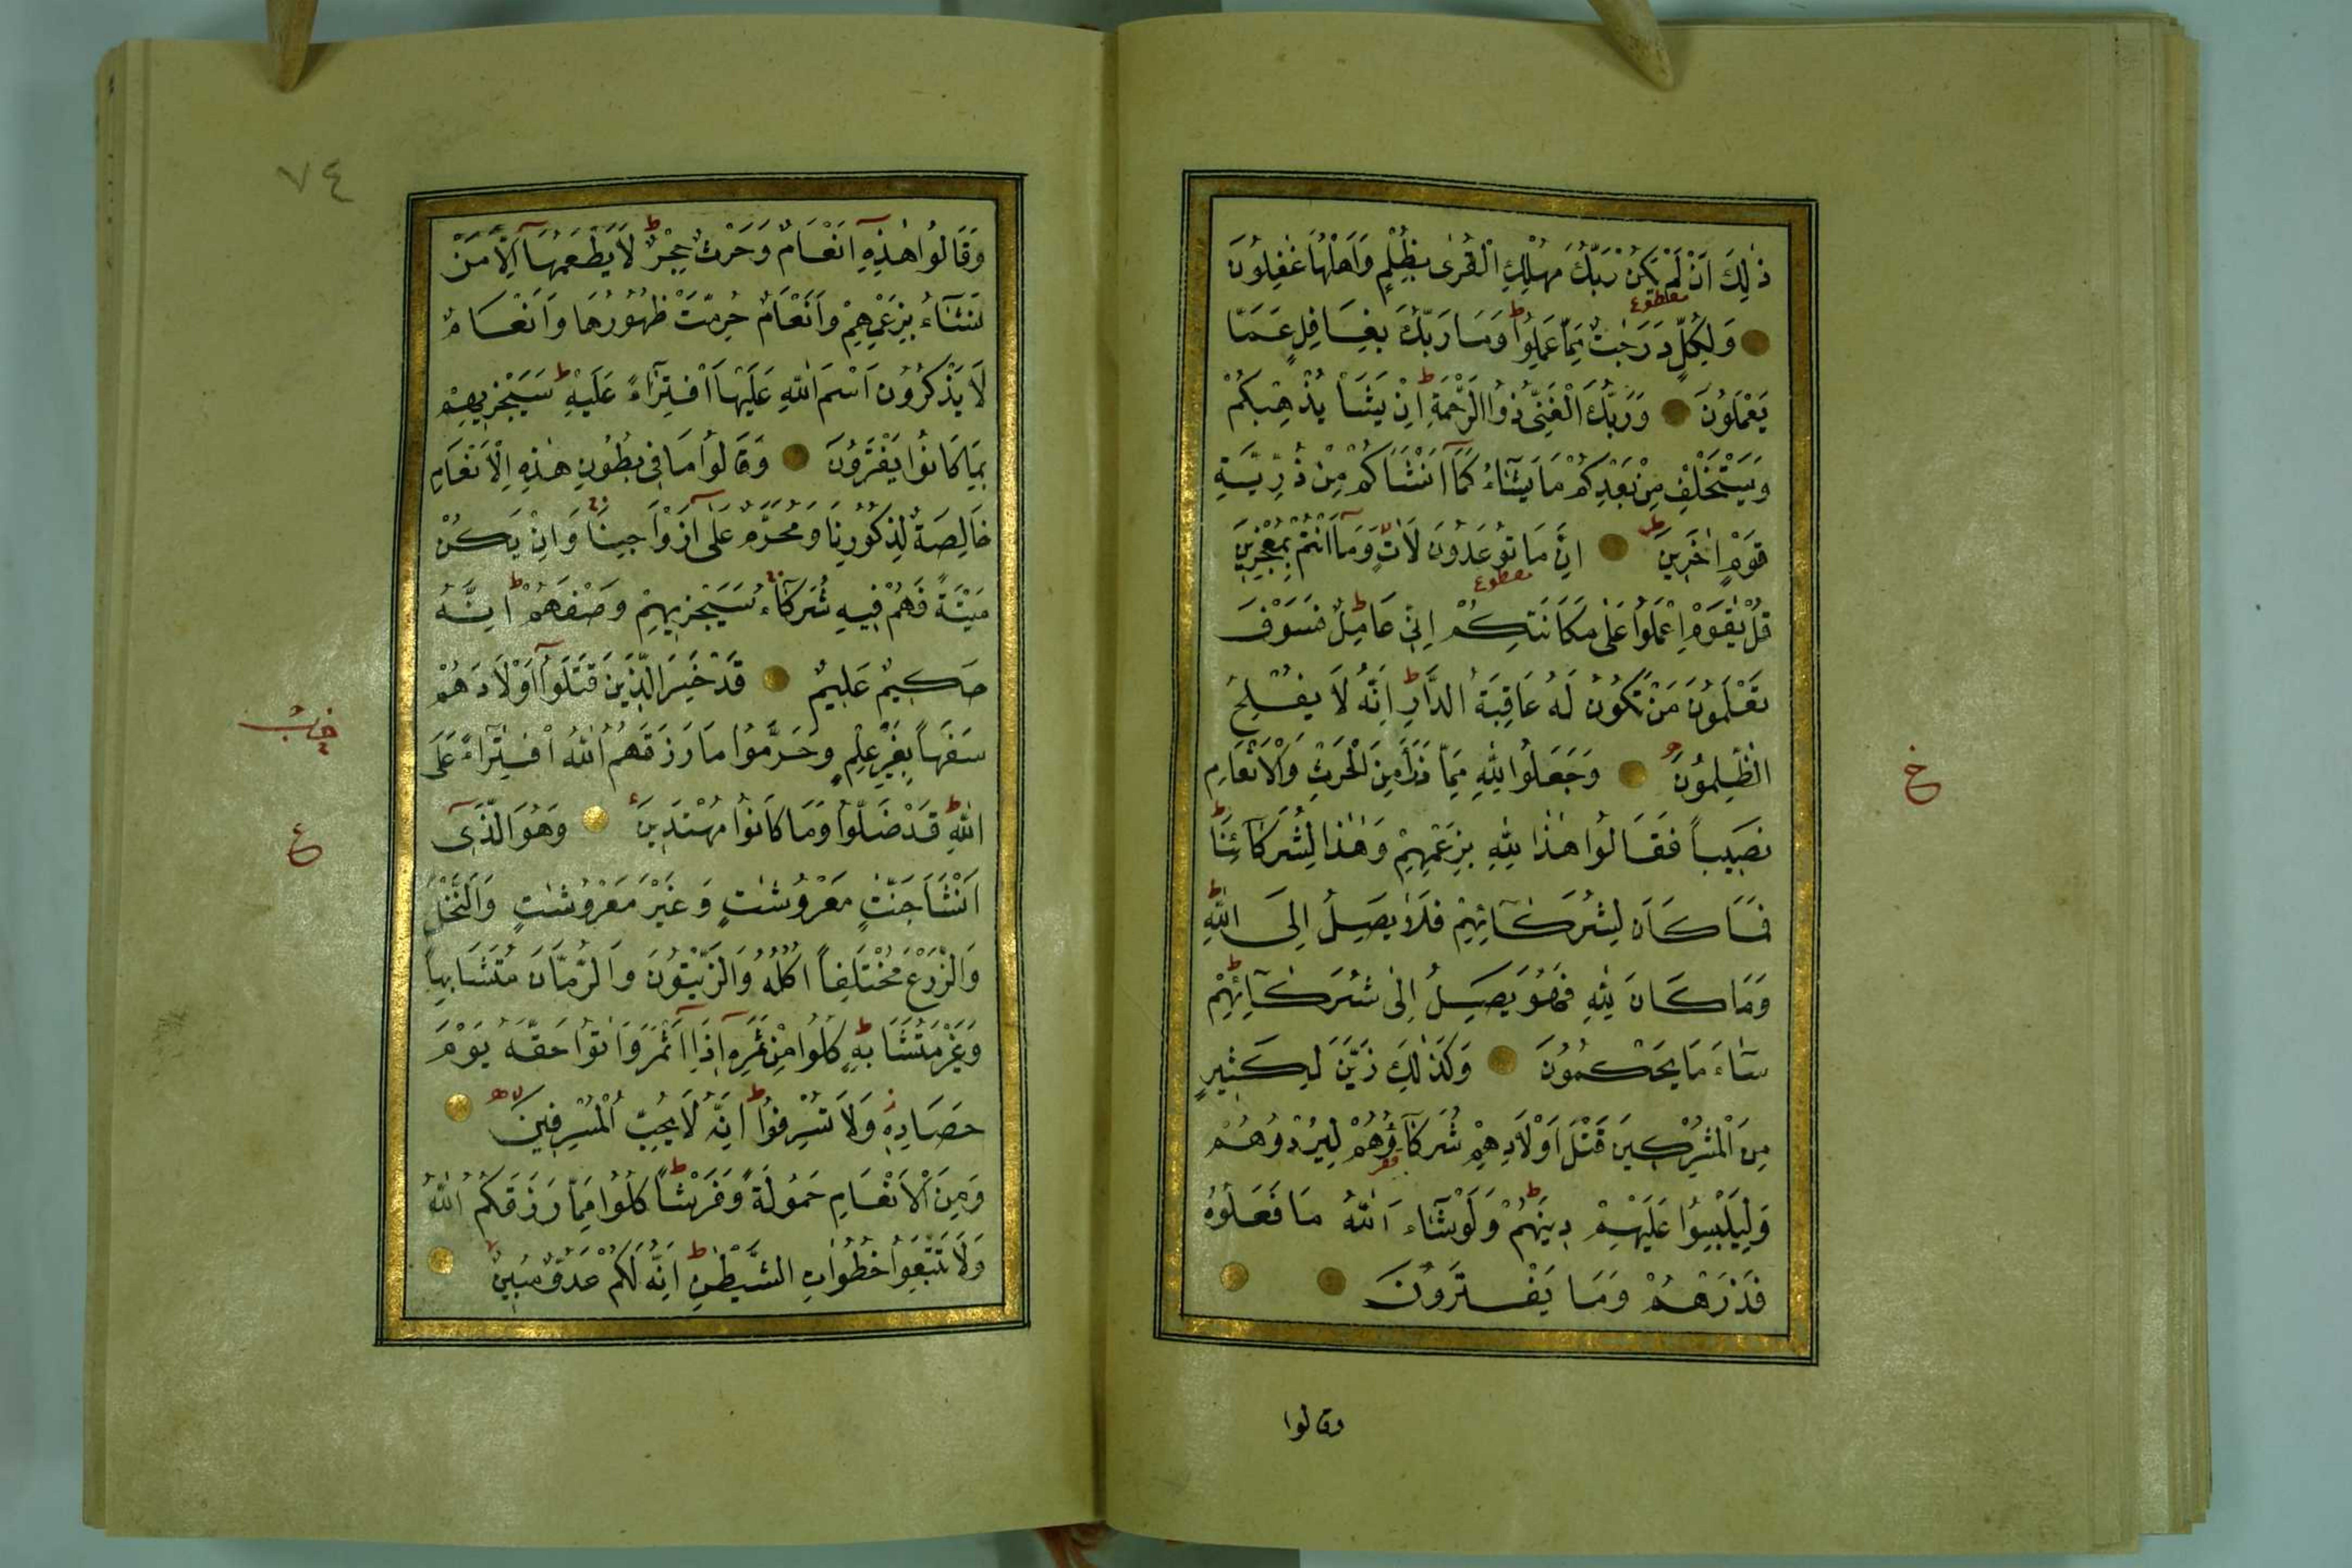 ذٰلِكَ اَنْ لَمْ يَكُنْ رَبُّكَ مُهْلِكَ الْقُرٰى بِظُلْمٍ وَاَهْلُهَا غٰفِلُونَ
وَلِكُلٍّ دَرَجٰتٌ مِمَّا عَمِلُوا ط وَمَا رَبُّكَ بِغَافِلٍ عَمَّا
يَعْمَلُونَ وَرَبُّكَ الْغَنِىُّ ذُوا الرَّحْمَةِ ط اِنْ يَشَأْ يُذْهِبْكُمْ
وَيَسْتَخْلِفْ مِنْ بَعْدِكُمْ مَا يَشَٓاءُ كَمَٓا اَنْشَاَكُمْ مِنْ ذُرِّيَّةِ
قَوْمٍ اٰخَرِينَ ط اِنَّ مَا تُوعَدُونَ لَاٰتٍ وَمَٓا اَنْتُمْ بِمُعْجِزِينَ
قُلْ يٰقَوْمِ اعْمَلُوا عَلٰى مَكَانَتِكُمْ اِنِّى عَامِلٌ ط فَسَوْفَ
تَعْلَمُونَ مَنْ تَكُونُ لَهُ عَاقِبَةُ الدَّارِ ط اِنَّهُ لَا يُفْلِحُ
الظّٰلِمُونَ وَجَعَلُوا لِلّٰهِ مِمَّا ذَرَاَ مِنَ الْحَرْثِ وَالْاَنْعَامِ
نَصِيباً فَقَالُوا هٰذَا لِلّٰهِ بِزَعْمِهِمْ وَهٰذَا لِشُرَكَٓائِنَا ط
فَمَا كَانَ لِشُرَكَٓائِهِمْ فَلَا يَصِلُ اِلَى اللّٰهِ ط
وَمَا كَانَ لِلّٰهِ فَهُوَ يَصِلُ اِلٰى شُرَكَٓائِهِمْ ط
سَٓاءَ مَا يَحْكُمُونَ وَكَذٰلِكَ زَيَّنَ لِكَثِيرٍ
مِنَ الْمُشْرِكِينَ قَتْلَ اَوْلَادِهِمْ شُرَكَٓاؤُهُمْ لِيُرْدُوهُمْ
وَلِيَلْبِسُوا عَلَيْهِمْ دِينَهُمْ ط وَلَوْ شَٓاءَ اللّٰهُ مَا فَعَلُوهُ
فَذَرْهُمْ وَمَا يَفْتَرُونَ
خ
وقالوا
٧٤
وَقَالُوا هٰذِهِٓ اَنْعَامٌ وَحَرْثٌ حِجْرٌ ط لَا يَطْعَمُهَٓا اِلَّا مَنْ
نَشَٓاءُ بِزَعْمِهِمْ وَاَنْعَامٌ حُرِّمَتْ ظُهُورُهَا وَاَنْعَامٌ
لَا يَذْكُرُونَ اسْمَ اللّٰهِ عَلَيْهَا افْتِرَٓاءً عَلَيْهِ ط سَيَجْزِيهِمْ
بِمَا كَانُوا يَفْتَرُونَ وَقَالُوا مَا فِى بُطُونِ هٰذِهِ الْاَنْعَامِ
خَالِصَةٌ لِذُكُورِنَا وَمُحَرَّمٌ عَلٰٓى اَزْوَاجِنَا وَاِنْ يَكُنْ
مَيْتَةً فَهُمْ فِيهِ شُرَكَٓاءُ سَيَجْزِيهِمْ وَصْفَهُمْ ط اِنَّهُ
حَكِيمٌ عَلِيمٌ قَدْ خَسِرَ الَّذِينَ قَتَلُٓوا اَوْلَادَهُمْ
سَفَهاً بِغَيْرِ عِلْمٍ وَحَرَّمُوا مَا رَزَقَهُمُ اللّٰهُ افْتِرَٓاءً عَلَى
اللّٰهِ ط قَدْ ضَلُّوا وَمَا كَانُوا مُهْتَدِينَ وَهُوَ الَّذِٓى
اَنْشَاَ جَنّٰتٍ مَعْرُوشٰتٍ وَغَيْرَ مَعْرُوشٰتٍ وَالنَّخْلَ
وَالزَّرْعَ مُخْتَلِفاً اُكُلُهُ وَالزَّيْتُونَ وَالرُّمَّانَ مُتَشَابِهاً
وَغَيْرَ مُتَشَابِهٍ ط كُلُوا مِنْ ثَمَرِهِٓ اِذَٓا اَثْمَرَ وَاٰتُوا حَقَّهُ يَوْمَ
حَصَادِهِ وَلَا تُسْرِفُوا ط اِنَّهُ لَا يُحِبُّ الْمُسْرِفِينَ
وَمِنَ الْاَنْعَامِ حَمُولَةً وَفَرْشاً ط كُلُوا مِمَّا رَزَقَكُمُ اللّٰهُ
وَلَا تَتَّبِعُوا خُطُوَاتِ الشَّيْطٰنِ ط اِنَّهُ لَكُمْ عَدُوٌّ مُبِينٌ
ع